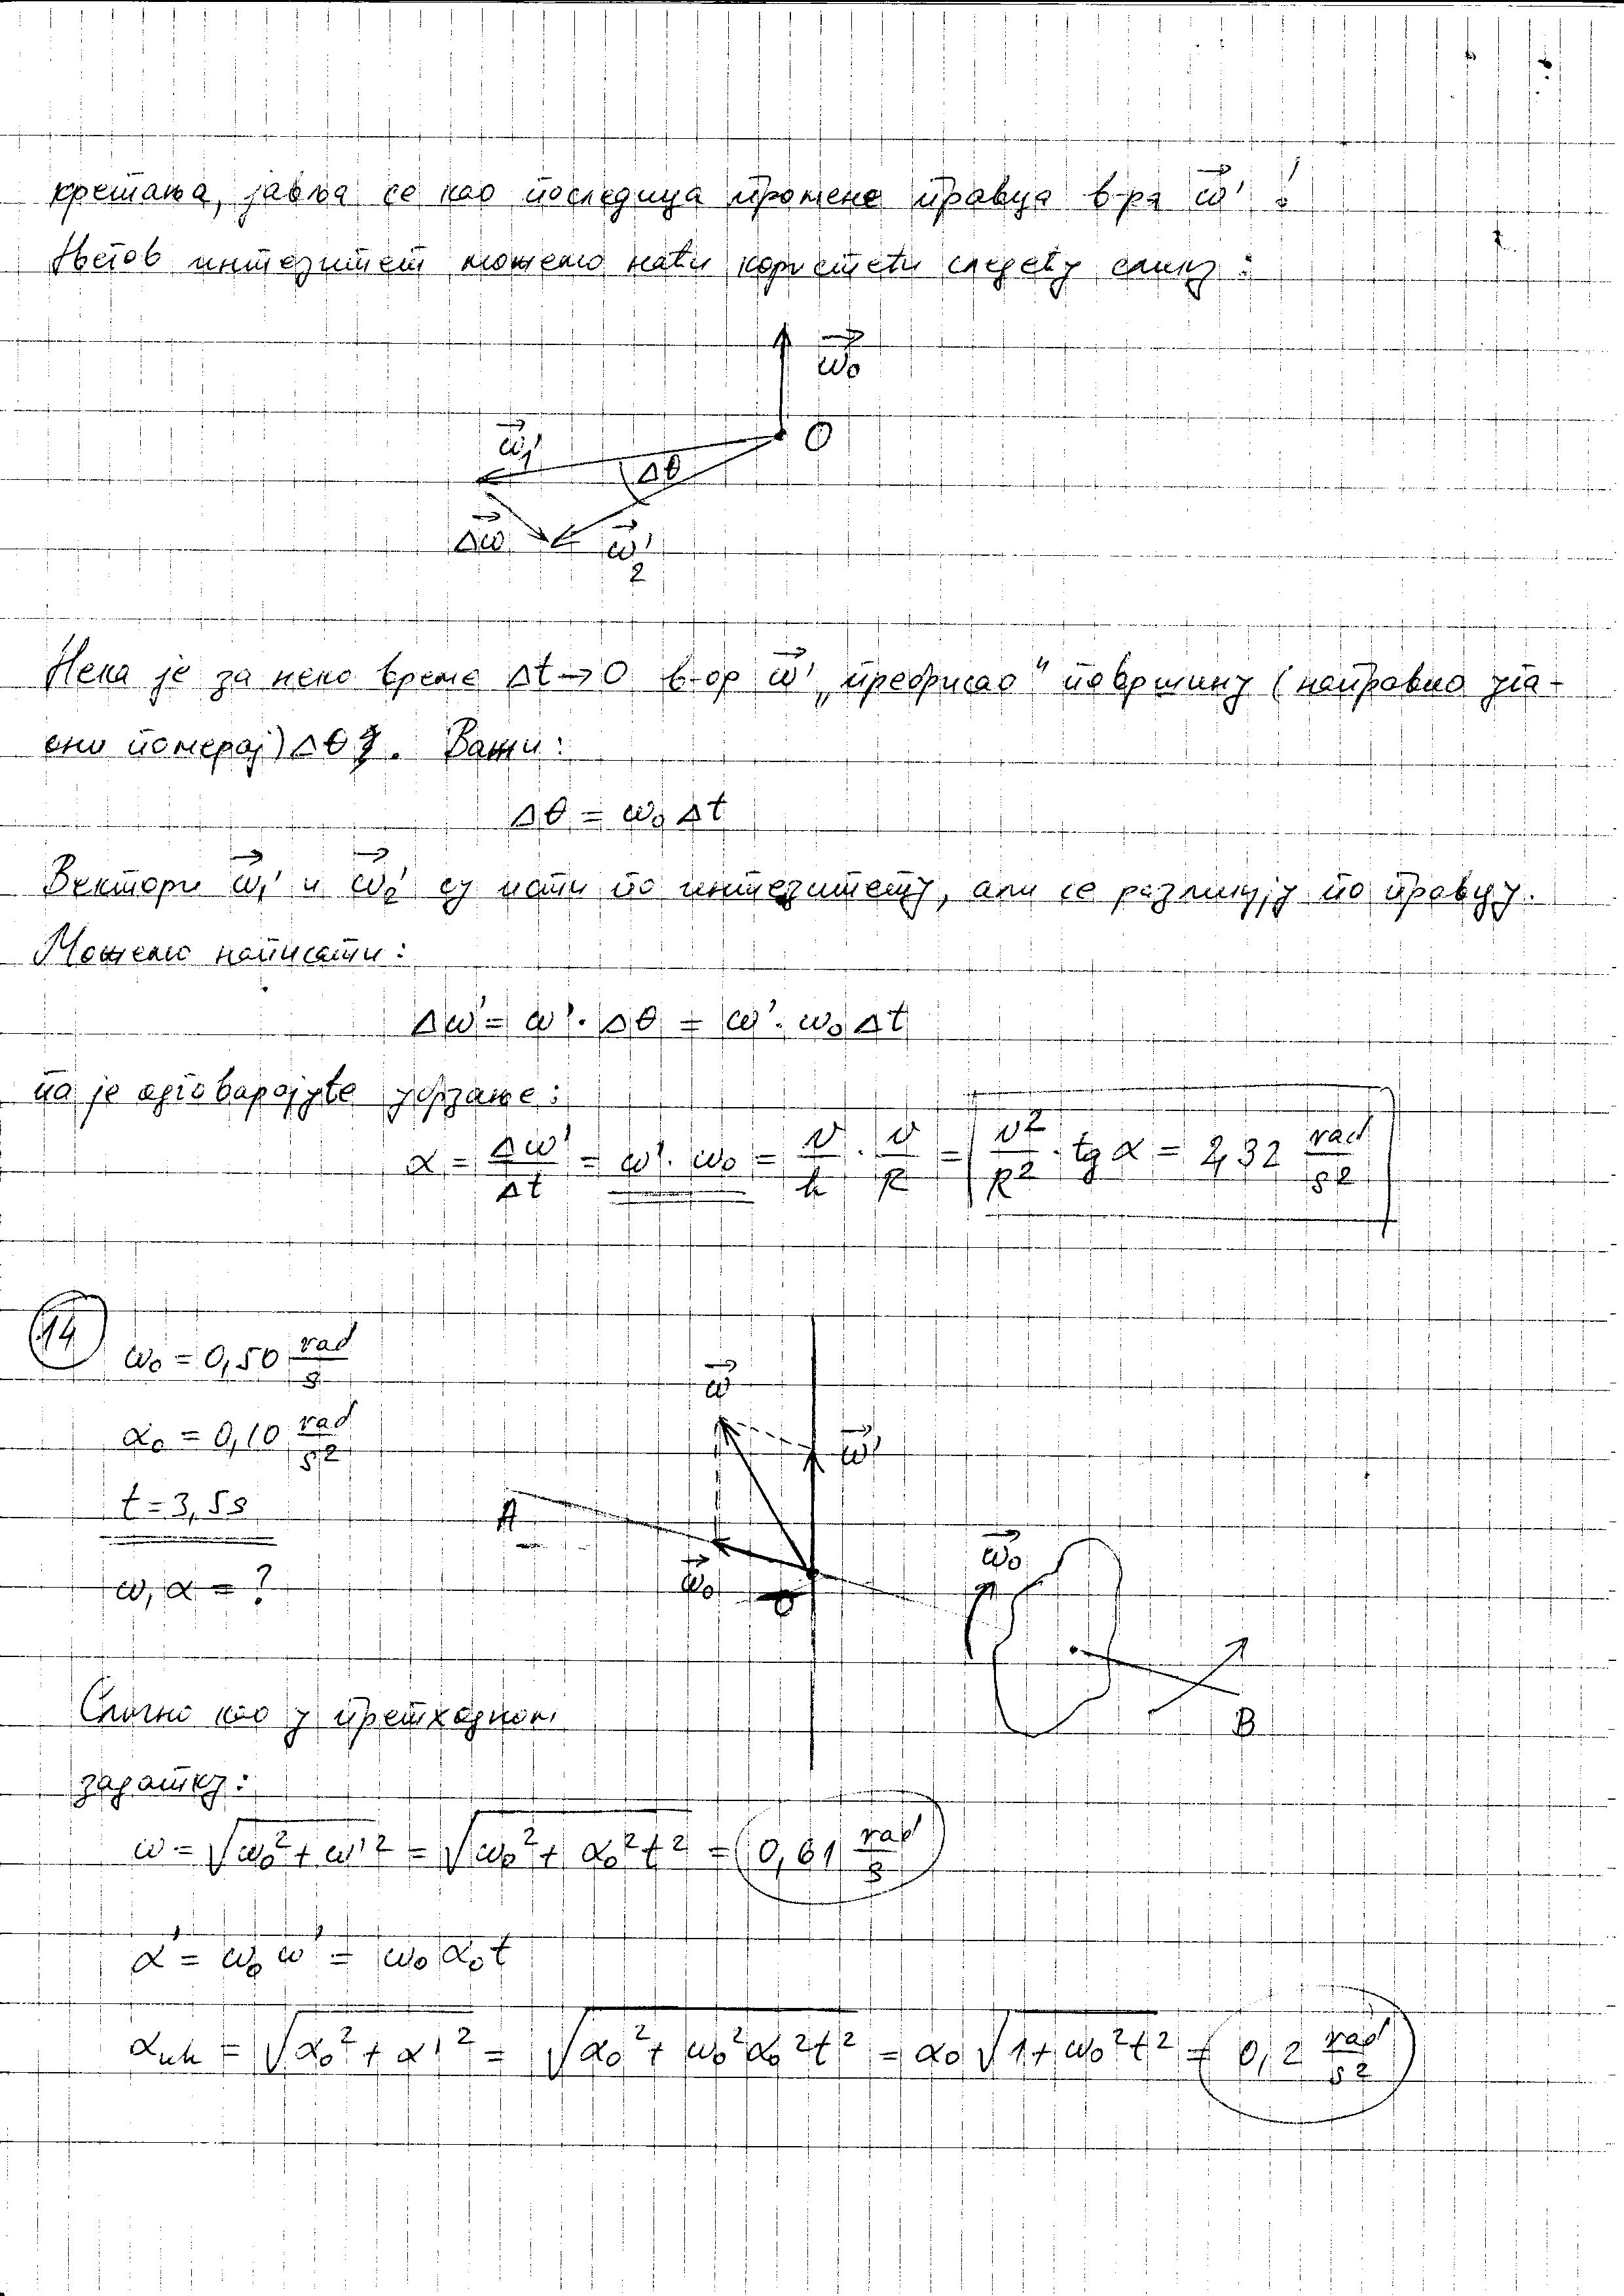 кретања, јавља се као последица промене правца в-ра ω⃗' !
Његов интезитет можемо наћи користећи следећу слику :
ω⃗₀
O
ω⃗₁'
Δθ
Δω⃗
ω⃗₂'
Нека је за неко време Δt→0 в-ор ω⃗' „пребрисао" површину (направио уга-
они померај) Δθ. Важи:
Δθ = ω₀ Δt
Вектори ω⃗₁' и ω⃗₂' су исти по интезитету, али се разликују по правцу.
Можемо написати:
Δω' = ω' · Δθ = ω' · ω₀ Δt
па је одговарајуће убрзање :
α = Δω'/Δt = ω' · ω₀ = v/h · v/R = v²/R² · tg α = 2,32 rad/s²
14
ω₀ = 0,50 rad/s
α₀ = 0,10 rad/s²
t = 3,5s
ω, α = ?
ω⃗
ω⃗'
A
ω⃗₀
O
ω⃗₀
B
Слично као у претходном
задатку:
ω = √(ω₀² + ω'²) = √(ω₀² + α₀²t²) = 0,61 rad/s
α' = ω₀ ω' = ω₀ α₀ t
αuk = √(α₀² + α'²) = √(α₀² + ω₀²α₀²t²) = α₀ √(1 + ω₀²t²) = 0,2 rad/s²